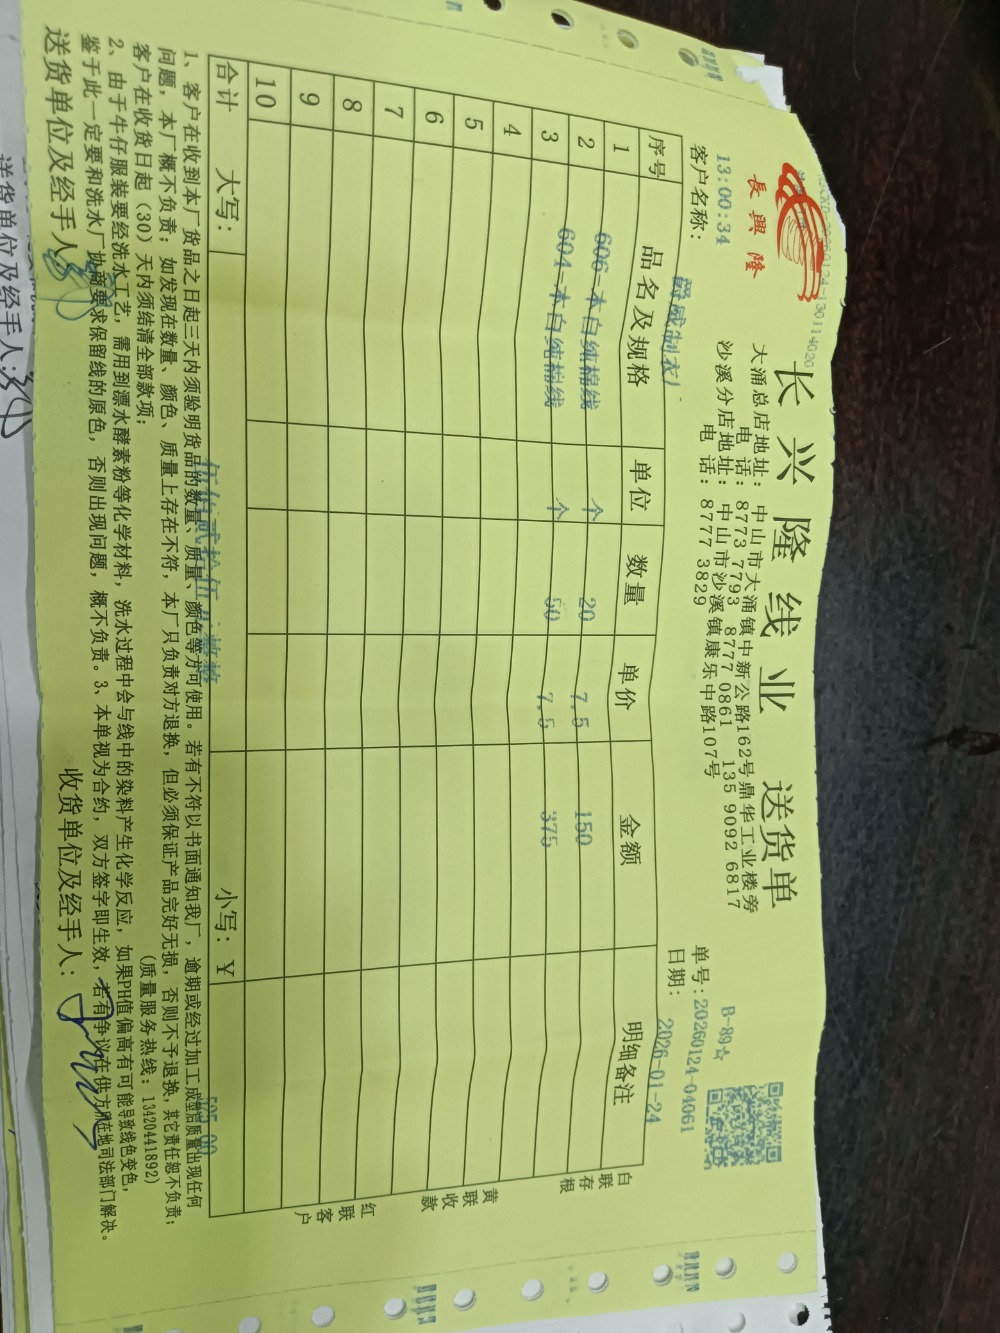 长兴隆线业 送货单
長興隆
大涌总店地址：中山市大涌镇中新公路162号鼎华工业楼旁
电 话：8773 7793 8777 0861 135 9092 6817
沙溪分店地址：中山市沙溪镇康乐中路107号
电 话：8777 3829
B-89☆
13:00:34
单号：20260124-04061
客户名称：爵威制衣厂
日期：2026-01-24
序号 品名及规格 单位 数量 单价 金额 明细备注
1 606-本白纯棉线 个 20 7.5 150
2 604-本白纯棉线 个 50 7.5 375
3
4
5
6
7
8
9
10
合计 大写：伍佰贰拾伍元整 小写：￥525.00
白联存根
黄联收款
红联客户
1、客户在收到本厂货品之日起三天内须验明货品的数量、质量、颜色等方可使用。若有不符以书面通知我厂，逾期或经过加工成型后质量出现任何
问题，本厂概不负责；如发现在数量、颜色、质量上存在不符，本厂只负责对方退换，但必须保证产品完好无损，否则不予退换，其它责任恕不负责；
客户在收货日起（30）天内须结清全部款项； （质量服务热线：13420441892）
2、由于牛仔服装要经洗水工艺，需用到漂水酵素粉等化学材料，洗水过程中会与线中的染料产生化学反应，如果PH值偏高有可能导致线色变色，
鉴于此一定要和洗水厂协商要求保留线的原色，否则出现问题，概不负责。3、本单视为合约，双方签字即生效，若有争议在供方所在地司法部门解决。
送货单位及经手人： 收货单位及经手人：
送货单位及经手人：